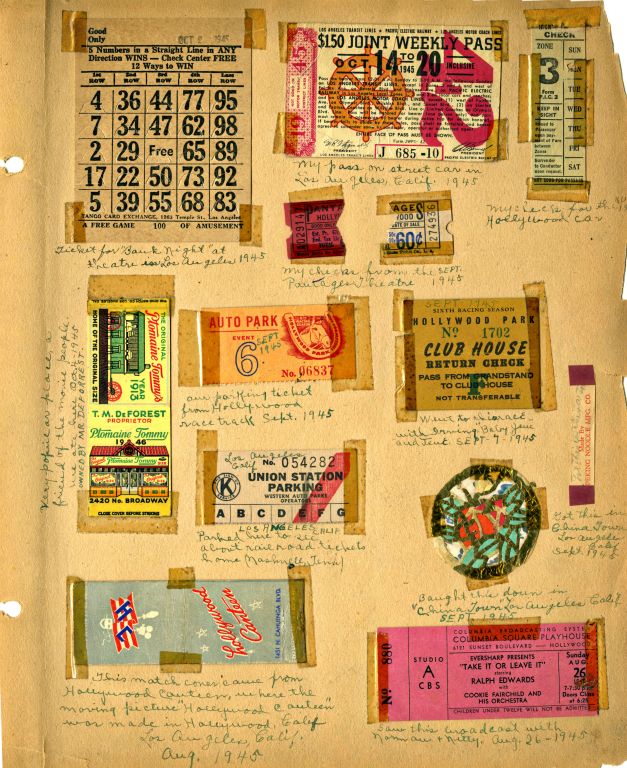 Good
Only
OCT 2 1945
5 Numbers in a Straight Line in ANY
Direction WINS — Check Center FREE
12 Ways to WIN
1st ROW 2nd ROW 3rd ROW 4th ROW Last ROW
4 36 44 77 95
7 34 47 62 98
2 29 Free 65 89
17 22 50 73 92
5 39 55 68 83
TANGO CARD EXCHANGE, 1263 Temple St., Los Angeles
A FREE GAME 100 OF AMUSEMENT
Ticket for "Bank Night" at
theatre in Los Angeles 1945
LOS ANGELES TRANSIT LINES • PACIFIC ELECTRIC RAILWAY • LOS ANGELES MOTOR COACH LINES
$1.50 JOINT WEEKLY PASS
OCT. 14 TO 20
1945 INCLUSIVE
A2
J 685-10
LOS ANGELES TRANSIT LINES
PACIFIC ELECTRIC RAILWAY
My pass on street car in
Los Angeles, Calif. 1945
CHECK
ZONE
3
Form
P.I.C. 3
KEEP IN
SIGHT
SUN
MON
TUE
WED
THU
FRI
SAT
My checks for the
Hollywood car
HOLLY
GOOD
AGE
GOOD
DATE OF SALE
60¢
274936
My checks from the SEPT.
Pantages Theatre 1945
THE ORIGINAL
Ptomaine Tommy's
YEAR
1913
HOME OF THE ORIGINAL SIZE
T. M. DeFOREST
PROPRIETOR
Ptomaine Tommy
1946
Ptomaine Tommy
2420 No. BROADWAY
CLOSE COVER BEFORE STRIKING
Very popular place, a
friend of the movie people.
OWNED BY MR. DEFOREST.
AUTO PARK
EVENT
6
SEPT
1945
HOLLYWOOD PARK
No. 06837
our parking ticket
from Hollywood
race track Sept. 1945
SEPT 1945
SIXTH RACING SEASON
HOLLYWOOD PARK
No 1702
CLUB HOUSE
RETURN CHECK
PASS FROM GRANDSTAND
TO CLUB HOUSE
NOT TRANSFERABLE
Went to the races
with Irving, Baby Jene
SEPT-7-1945
Los Angeles
Calif
No. 054282
K
UNION STATION
PARKING
WESTERN AUTO PARKS
OPERATORS
A B C D E F G
LOS ANGELES CALIF
Parked here to see
about rail road tickets
home (Nashville, Tenn)
Made by
NOODLE MFG. CO.
Got this in
China Town
Los Angeles
Calif
Sept. 1945
Bought this down in
China Town, Los Angeles Calif
SEPT. 1945
HC
Hollywood
Canteen
1451 N. CAHUENGA BLVD.
"This match cover" came from
Hollywood Canteen, where the
moving picture "Hollywood Canteen"
was made in Hollywood, Calif
Los Angeles, Calif,
Aug. 1945
No 880
STUDIO
A
CBS
COLUMBIA BROADCASTING SYSTEM
COLUMBIA SQUARE PLAYHOUSE
6121 SUNSET BOULEVARD — HOLLYWOOD
EVERSHARP PRESENTS
"TAKE IT OR LEAVE IT"
starring
RALPH EDWARDS
with
COOKIE FAIRCHILD AND
HIS ORCHESTRA
Sunday
AUG
26
1945
Doors Close
at 6:25
CHILDREN UNDER TWELVE WILL NOT BE ADMITTED
Saw this broadcast with
Norman & Kitty. Aug. 26-1945